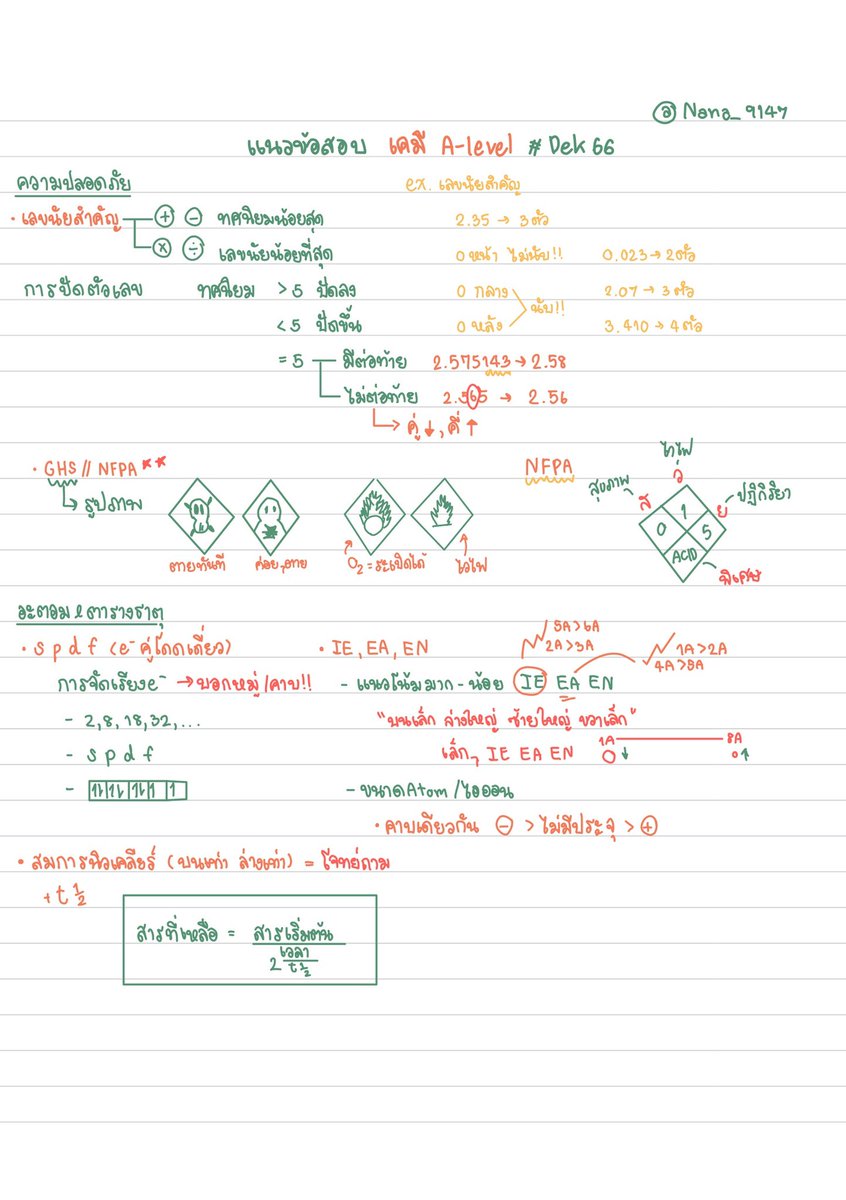 @ Nana_9147
แนวข้อสอบ เคมี A-level # Dek 66
ความปลอดภัย
ex. เลขนัยสำคัญ
• เลขนัยสำคัญ + - ทศนิยมน้อยสุด
2.35 → 3 ตัว
× ÷ เลขนัยน้อยที่สุด
0 หน้า ไม่นับ!! 0.023 → 2 ตัว
การปัดตัวเลข ทศนิยม > 5 ปัดลง
0 กลาง 2.07 → 3 ตัว
นับ!!
< 5 ปัดขึ้น
0 หลัง 3.410 → 4 ตัว
= 5 มีต่อท้าย 2.575143 → 2.58
ไม่ต่อท้าย 2.565 → 2.56
คู่ ↓, คี่ ↑
• GHS // NFPA **
รูปภาพ
ตายทันที
ค่อยๆตาย
O₂ = ระเบิดได้
ไวไฟ
NFPA
ไวไฟ
ว
สุขภาพ
ส
ปฏิกิริยา
ย
1
0 5
ACID
พิเศษ
อะตอม & ตารางธาตุ
• s p d f (e⁻ คู่โดดเดี่ยว)
• IE, EA, EN
5A>6A
2A>3A
1A>2A
4A>5A
การจัดเรียง e⁻ → บอกหมู่/คาบ!!
- แนวโน้มมาก - น้อย IE EA EN
- 2, 8, 18, 32, ...
"บนเล็ก ล่างใหญ่ ซ้ายใหญ่ ขวาเล็ก"
- s p d f
เล็กๆ IE EA EN
1A 8A
↓ ↑
- 1l 1l 1l 1 1
- ขนาด Atom / ไอออน
• คาบเดียวกัน - > ไม่มีประจุ > +
• สมการนิวเคลียร์ (บนเท่า ล่างเท่า) = โจทย์ถาม
+ t ½
สารที่เหลือ = สารเริ่มต้น
2 เวลา
t ½